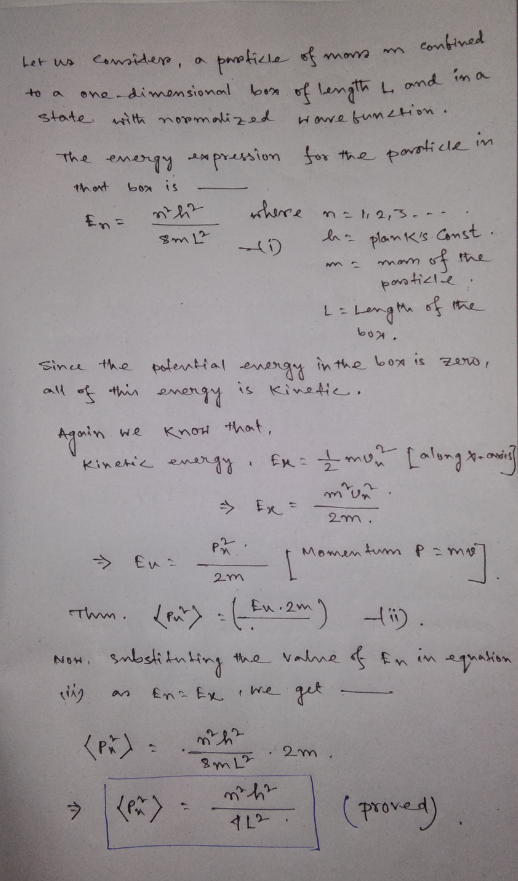 Let us consider, a particle of mass m confined
to a one-dimensional box of length L, and in a
state with normalized wavefunction.
The energy expression for the particle in
that box is —
En = n²h² / 8mL² —(i) where n = 1, 2, 3....
h = plank's Const.
m = mass of the
particle.
L = Length of the
box.
Since the potential energy in the box is zero,
all of this energy is Kinetic.
Again we know that,
Kinetic energy, Ex = 1/2 mvx² [along x-axis]
⇒ Ex = m²vx² / 2m.
⇒ Ex = Px² / 2m [Momentum P = mv].
Thus. ⟨Px²⟩ = (Ex.2m) —(ii).
Now, substituting the value of En in equation
(ii) as En = Ex, we get —
⟨Px²⟩ = n²h² / 8mL² . 2m.
⇒ ⟨Px²⟩ = n²h² / 4L². (proved).